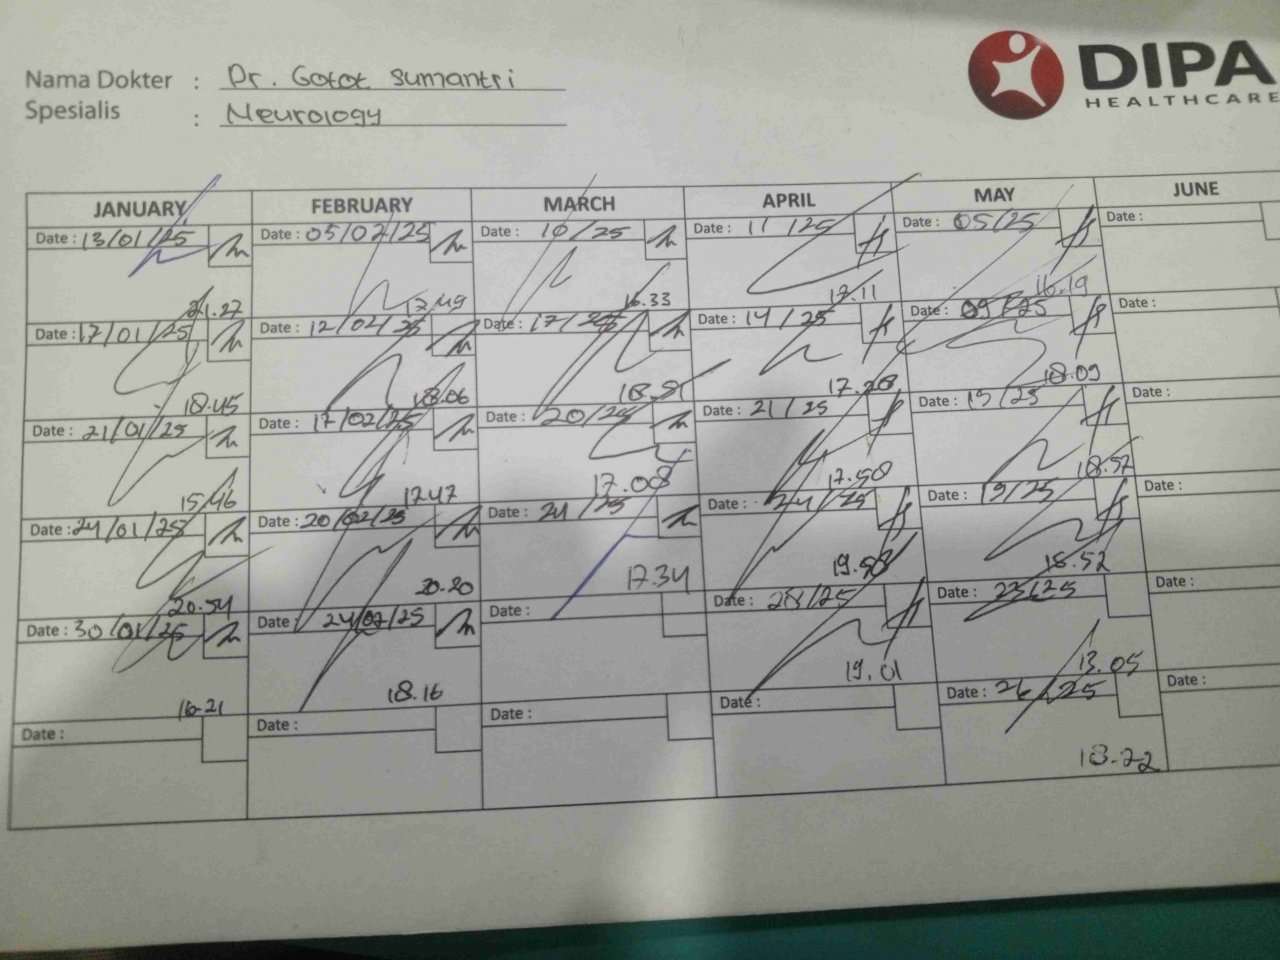 DIPA
HEALTHCARE
Nama Dokter : Dr. Gatot Sumantri
Spesialis : Neurology
JANUARY FEBRUARY MARCH APRIL MAY JUNE
Date : 13/01/25 Date : 05/02/25 Date : 10/25 Date : 11/25 Date : 05/25 Date :
21.27 17.49 16.33 17.11 16.19
Date : 17/01/25 Date : 12/02/25 Date : 17/25 Date : 14/25 Date : 09/25 Date :
18.45 18.06 18.51 17.28 18.09
Date : 21/01/25 Date : 17/02/25 Date : 20/25 Date : 21/25 Date : 15/25 Date :
15.46 17.47 17.08 17.58 18.57
Date : 24/01/25 Date : 20/02/25 Date : 24/25 Date : 24/25 Date : 19/25 Date :
20.54 20.20 17.34 19.58 18.52
Date : 30/01/25 Date : 24/02/25 Date : Date : 28/25 Date : 23/25 Date :
16.21 18.16 19.01 13.05
Date : Date : Date : Date : Date : 26/25 Date :
18.22